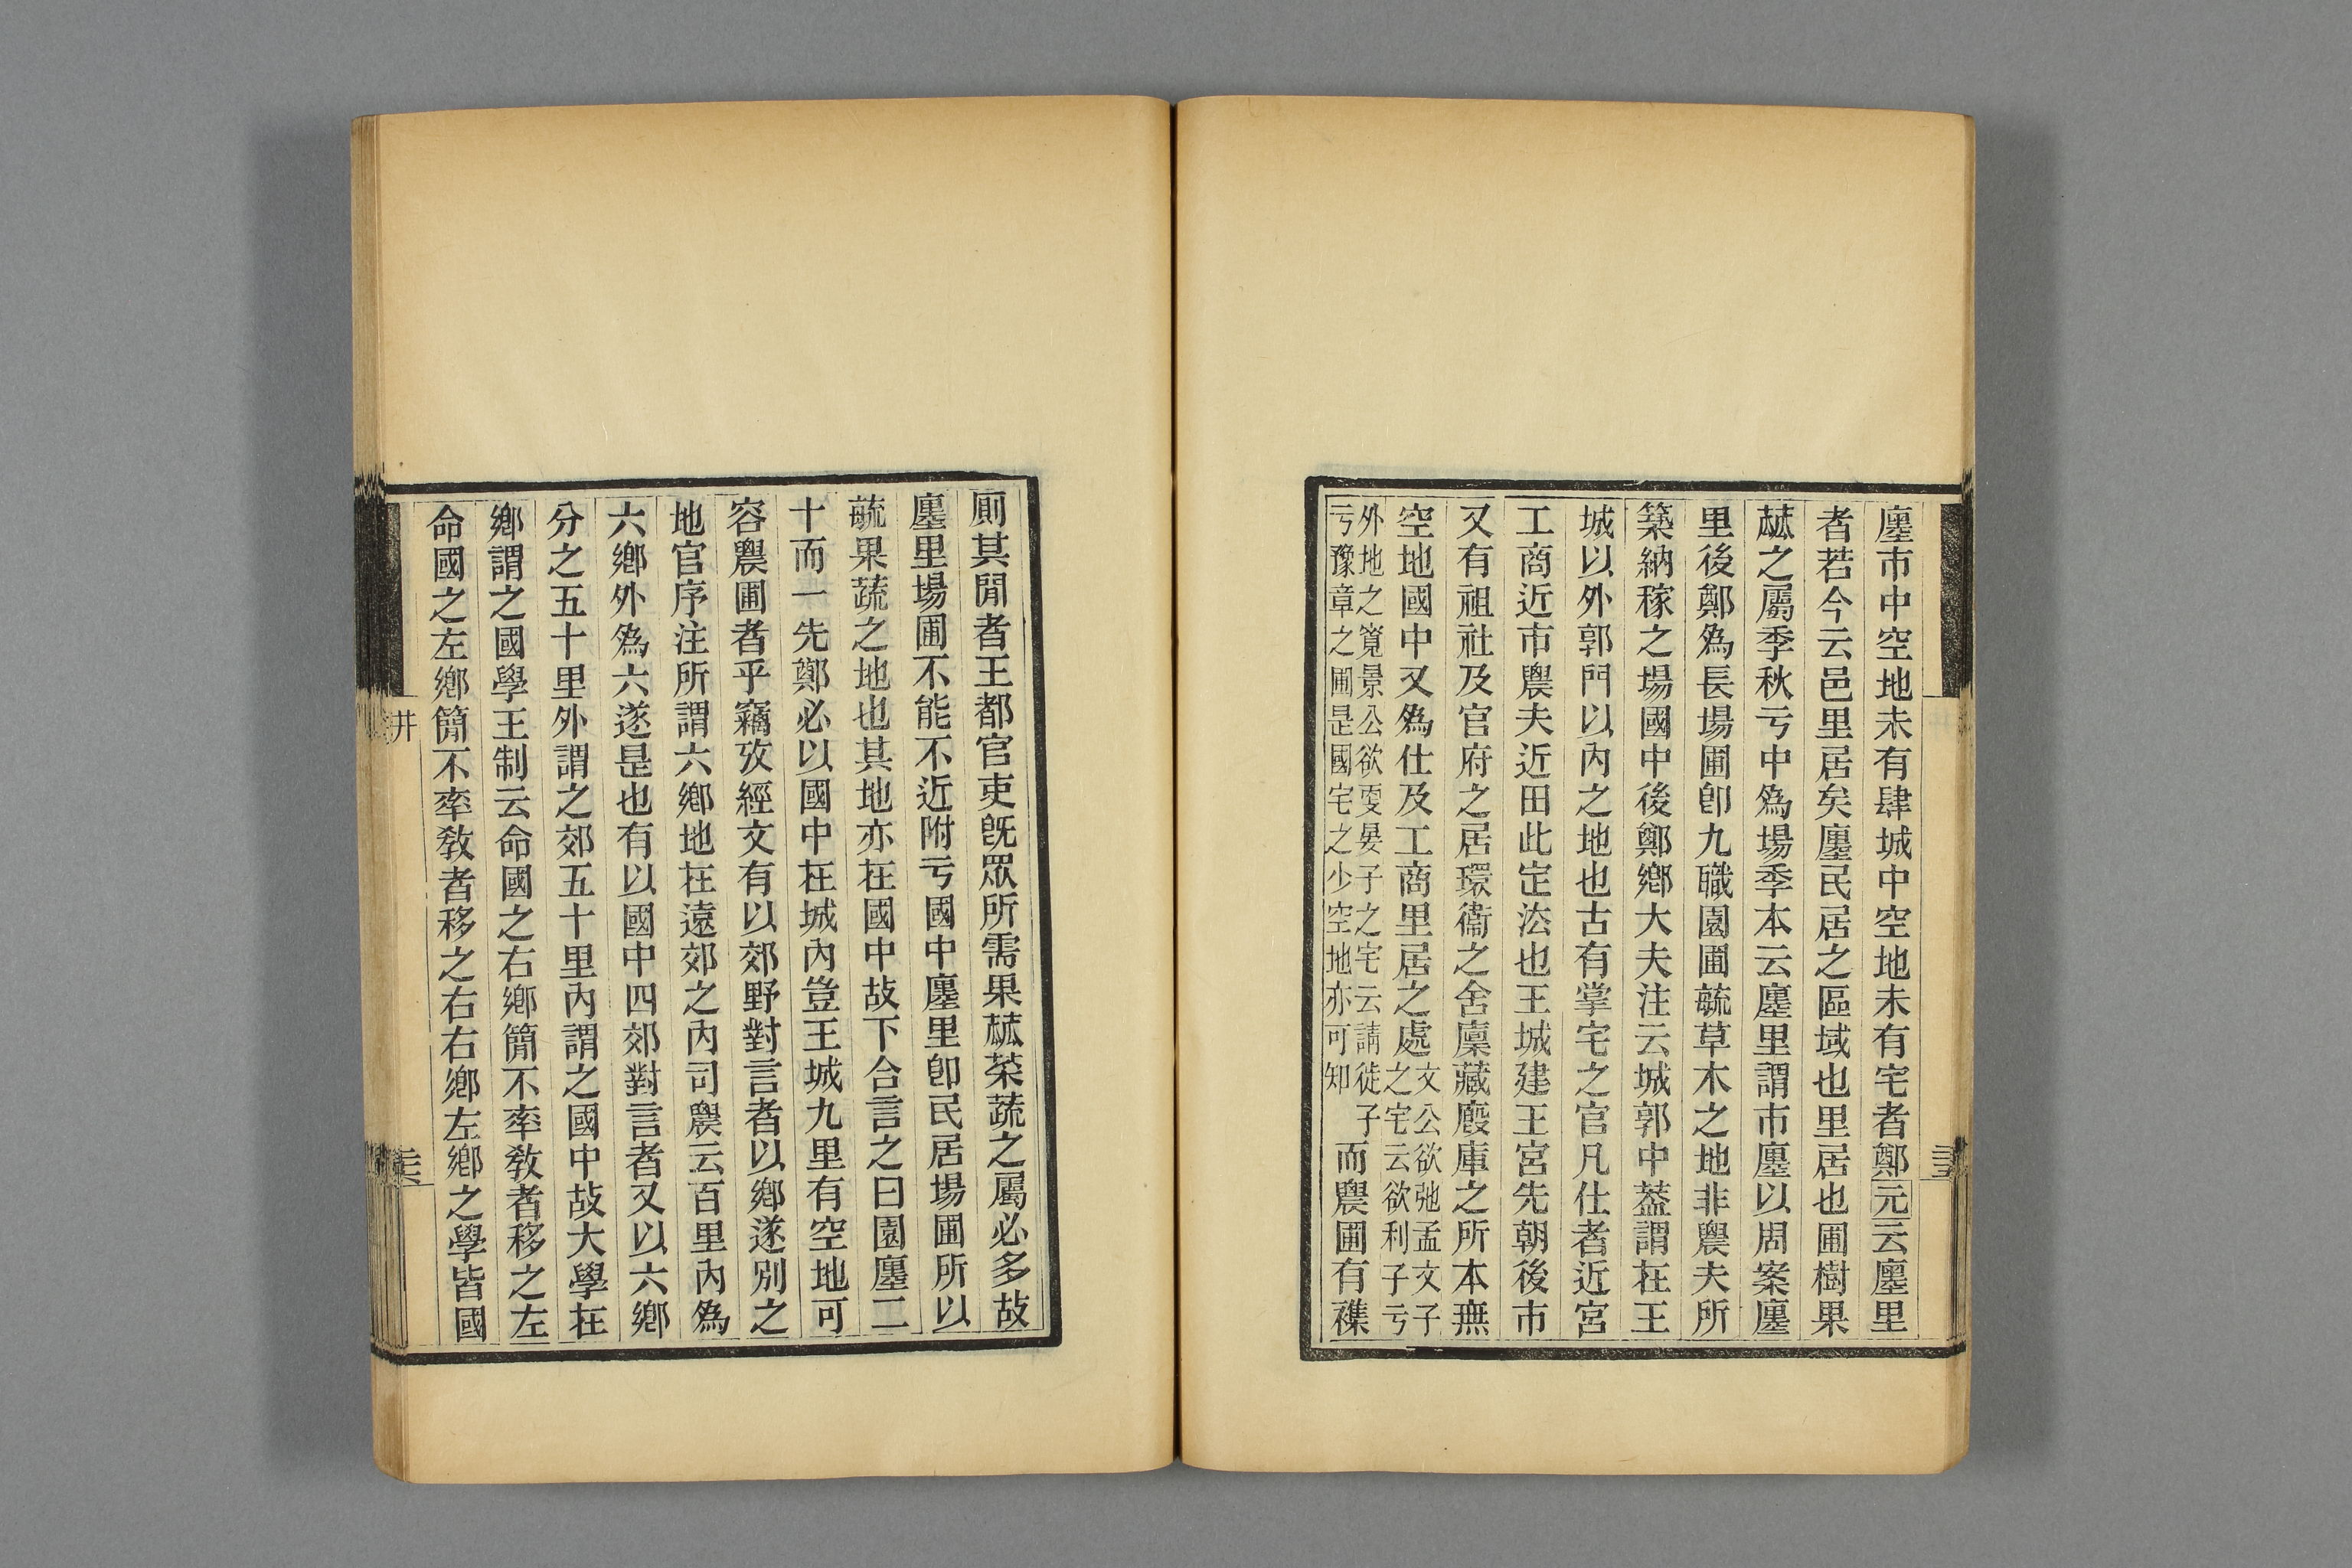 廛市中空地未有肆城中空地未有宅者鄭元云廛里
者若今云邑里居矣廛民居之區域也里居也圃樹果
蓏之屬季秋亏中爲場季本云廛里謂市廛以周案廛
里後鄭爲長場圃卽九職園圃毓草木之地非農夫所
築納稼之場國中後鄭鄉大夫注云城郭中葢謂在王
城以外郭門以內之地也古有掌宅之官凡仕者近宮
工商近市農夫近田此定法也王城建王宮先朝後市
又有祖社及官府之居環衞之舍廩藏廄庫之所本無
空地國中又爲仕及工商里居之處文公欲弛孟文子
之宅云欲利子亏
外地之寬景公欲更晏子之宅云請徙子
亏豫章之圃是國宅之少空地亦可知而農圃有襍
厠其閒者王都官吏旣眾所需果蓏菜蔬之屬必多故
廛里場圃不能不近附亏國中廛里卽民居場圃所以
毓果蔬之地也其地亦在國中故下合言之曰園廛二
十而一先鄭必以國中在城內豈王城九里有空地可
容農圃者乎竊攷經文有以郊野對言者以鄉遂別之
地官序注所謂六鄉地在遠郊之內司農云百里內爲
六鄉外爲六遂是也有以國中四郊對言者又以六鄉
分之五十里外謂之郊五十里內謂之國中故大學在
鄉謂之國學王制云命國之右鄉簡不率敎者移之左
命國之左鄉簡不率敎者移之右右鄉左鄉之學皆國
井